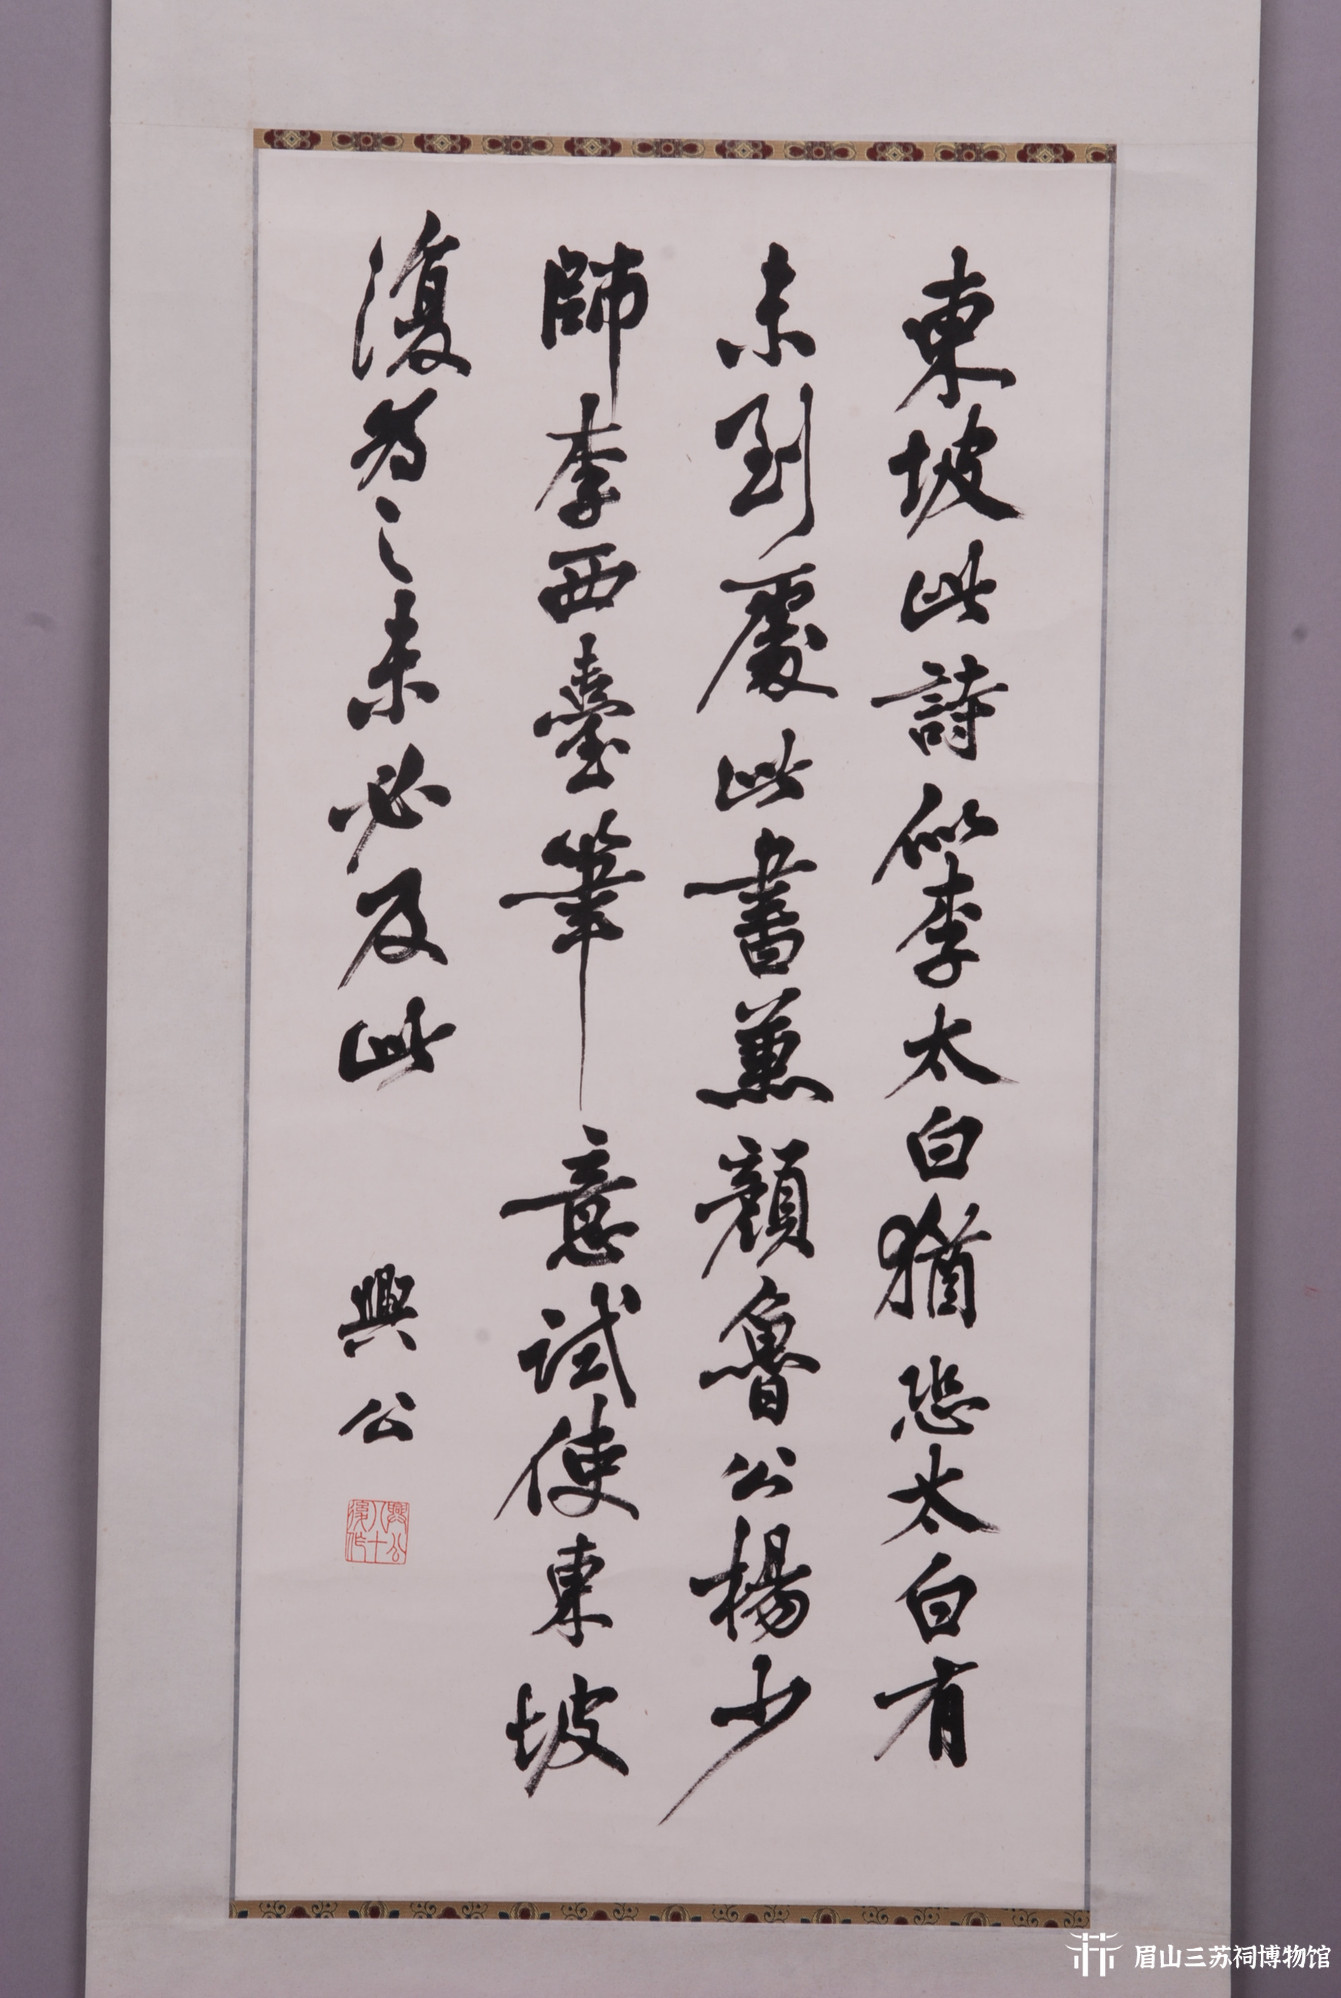 東坡此詩似李太白猶恐太白有
未到處此書兼顏魯公楊少
師李西臺筆意試使東坡
復為之未必及此
興公
興公八十後作
眉山三苏祠博物馆